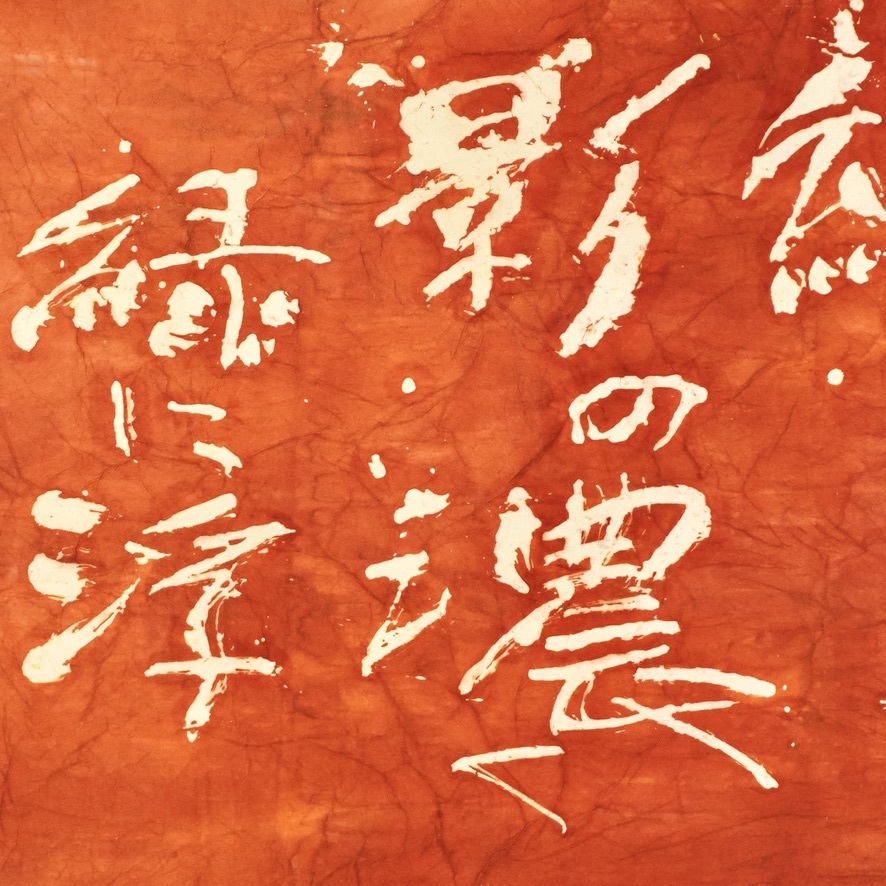 影の濃く
緑に浮